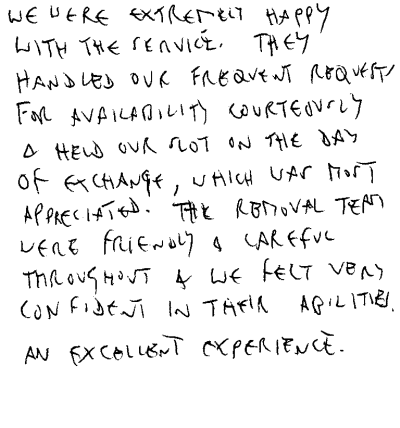 WE WERE EXTREMELY HAPPY
WITH THE SERVICE. THEY
HANDLED OUR FREQUENT REQUESTS
FOR AVAILABILITY COURTEOUSLY
& HELD OUR SLOT ON THE DAY
OF EXCHANGE, WHICH WAS MOST
APPRECIATED. THE REMOVAL TEAM
WERE FRIENDLY & CAREFUL
THROUGHOUT & WE FELT VERY
CONFIDENT IN THEIR ABILITIES.
AN EXCELLENT EXPERIENCE.